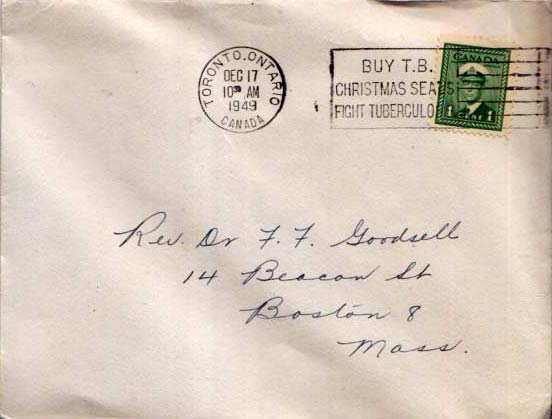 TORONTO, ONTARIO
DEC 17
10 AM
1949
CANADA
BUY T.B.
CHRISTMAS SEALS
FIGHT TUBERCULO
CANADA
1 CENT 1
Rev. Dr F. F. Goodsell
14 Beacon St
Boston 8
Mass.